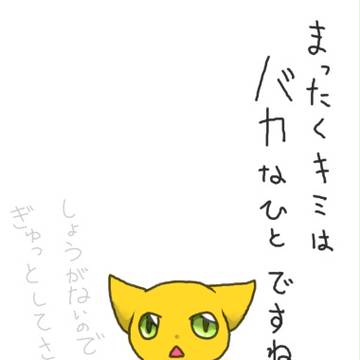 まったくキミは
バカなひとですね
しょうがないので
ぎゅっとしてさ